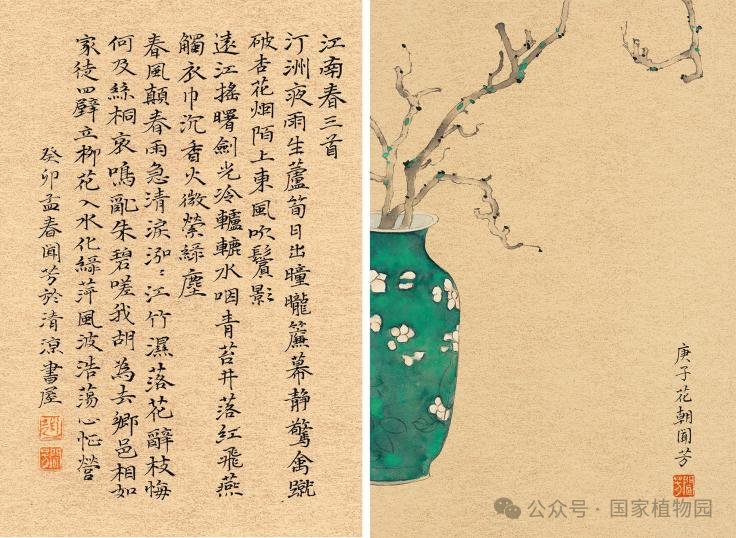 江南春三首
汀洲夜雨生蘆筍日出曈曨簾幕静驚禽蹴
破杏花烟陌上東風吹鬢影
遠江搖曙劍光冷轆轤水咽青苔井落紅飛燕
觸衣巾沉香火微縈緑塵
春風顛春雨急清淚泓泓江竹濕落花辭枝悔
何及絲桐哀鳴亂朱碧嗟我胡為去鄉邑相如
家徒四壁立柳花入水化綠萍風波浩蕩心怔營
癸卯孟春聞芳於清涼書屋
庚子花朝聞芳
公众号·国家植物园